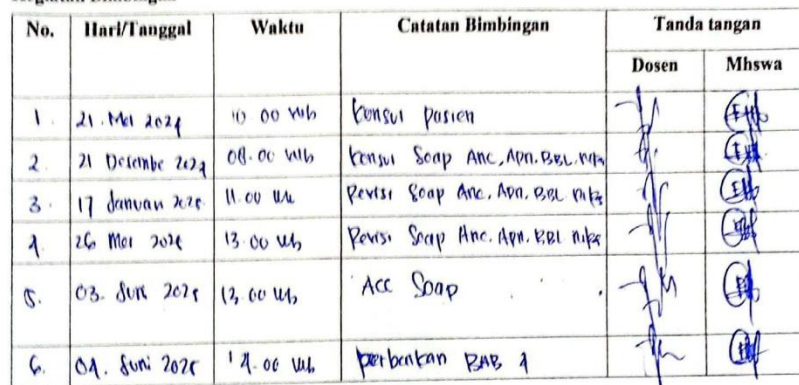 No. Hari/Tanggal Waktu Catatan Bimbingan Tanda tangan
Dosen Mhswa
1. 21. Mei 2024 10.00 wib Konsul pasien
2. 21 Desembe 2024 08.00 wib Konsul Soap Anc, Apn, BBL, nifas
3. 17 Januari 2025 11.00 wib Revisi Soap Anc, Apn, BBL nifas
4. 26 Mei 2025 13.00 wib Revisi Soap Anc, Apn, BBL nifas
5. 03. Juni 2025 13.00 wib Acc Soap
6. 04. Juni 2025 14.00 wib perbaikan BAB 4